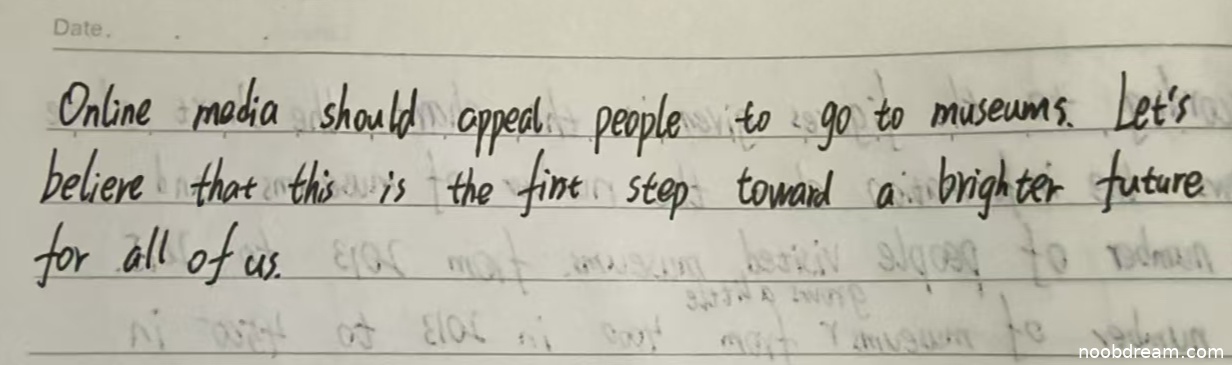 Date.
Online media should appeal people to go to museums. Let's
believe that this is the first step toward a brighter future
for all of us.
noobdream.com